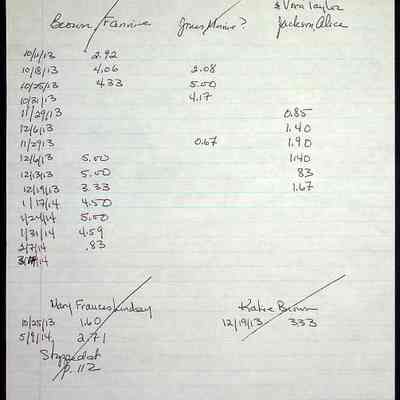 & Vern Taylor
Brown/Fannie Jones/Minnie? Jackson Alice
10/11/13 2.92
10/18/13 4.06 2.08
10/25/13 4.33 5.00
10/31/13 4.17
11/29/13 0.85
12/6/13 1.40
11/29/13 0.67 1.90
12/6/13 5.00 1.40
12/13/13 5.00 83
12/19/13 3.33 1.67
1/17/14 4.50
1/24/14 5.00
1/31/14 4.59
2/7/14 .83
Mary Frances Lindsay Katie Brown
10/25/13 1.60 12/19/13 333
5/9/14 2.71
Stopped at
p. 112